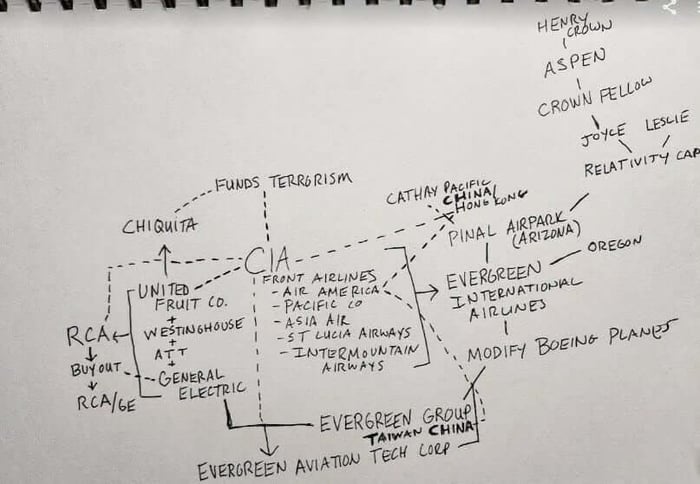 HENRY
CROWN
ASPEN
CROWN FELLOW
JOYCE LESLIE
RELATIVITY CAP
FUNDS TERRORISM
CATHAY PACIFIC
CHINA/
HONG KONG
CHIQUITA
PINAL AIRPARK
(ARIZONA)
OREGON
CIA
FRONT AIRLINES
- AIR AMERICA
- PACIFIC CO
- ASIA AIR
- ST LUCIA AIRWAYS
- INTERMOUNTAIN
AIRWAYS
EVERGREEN
INTERNATIONAL
AIRLINES
UNITED
FRUIT CO.
+
WESTINGHOUSE
+
ATT
+
GENERAL
ELECTRIC
RCA
BUYOUT
RCA/GE
MODIFY BOEING PLANES
EVERGREEN GROUP
TAIWAN CHINA
EVERGREEN AVIATION TECH CORP